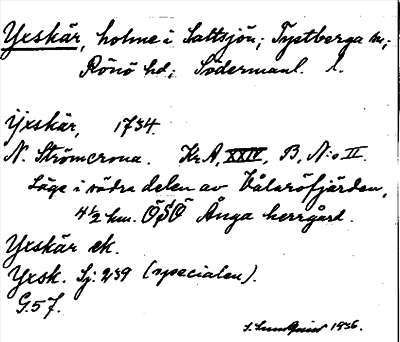 Yxskär, holme i Saltsjön; Tystberga sn;
Rönö hd; Södermanl. l.
Yxskär, 1734.
N. Strömcrona. Kr.A, XXIV, B, N:o II.
Läge i södra delen av Hålaröfjärden,
4½ km. ÖSÖ Ånga herrgård.
Yxskär ek.
Yxsk. Sj: 239 (specialen).
G.57.
S. Lundqvist 1936.